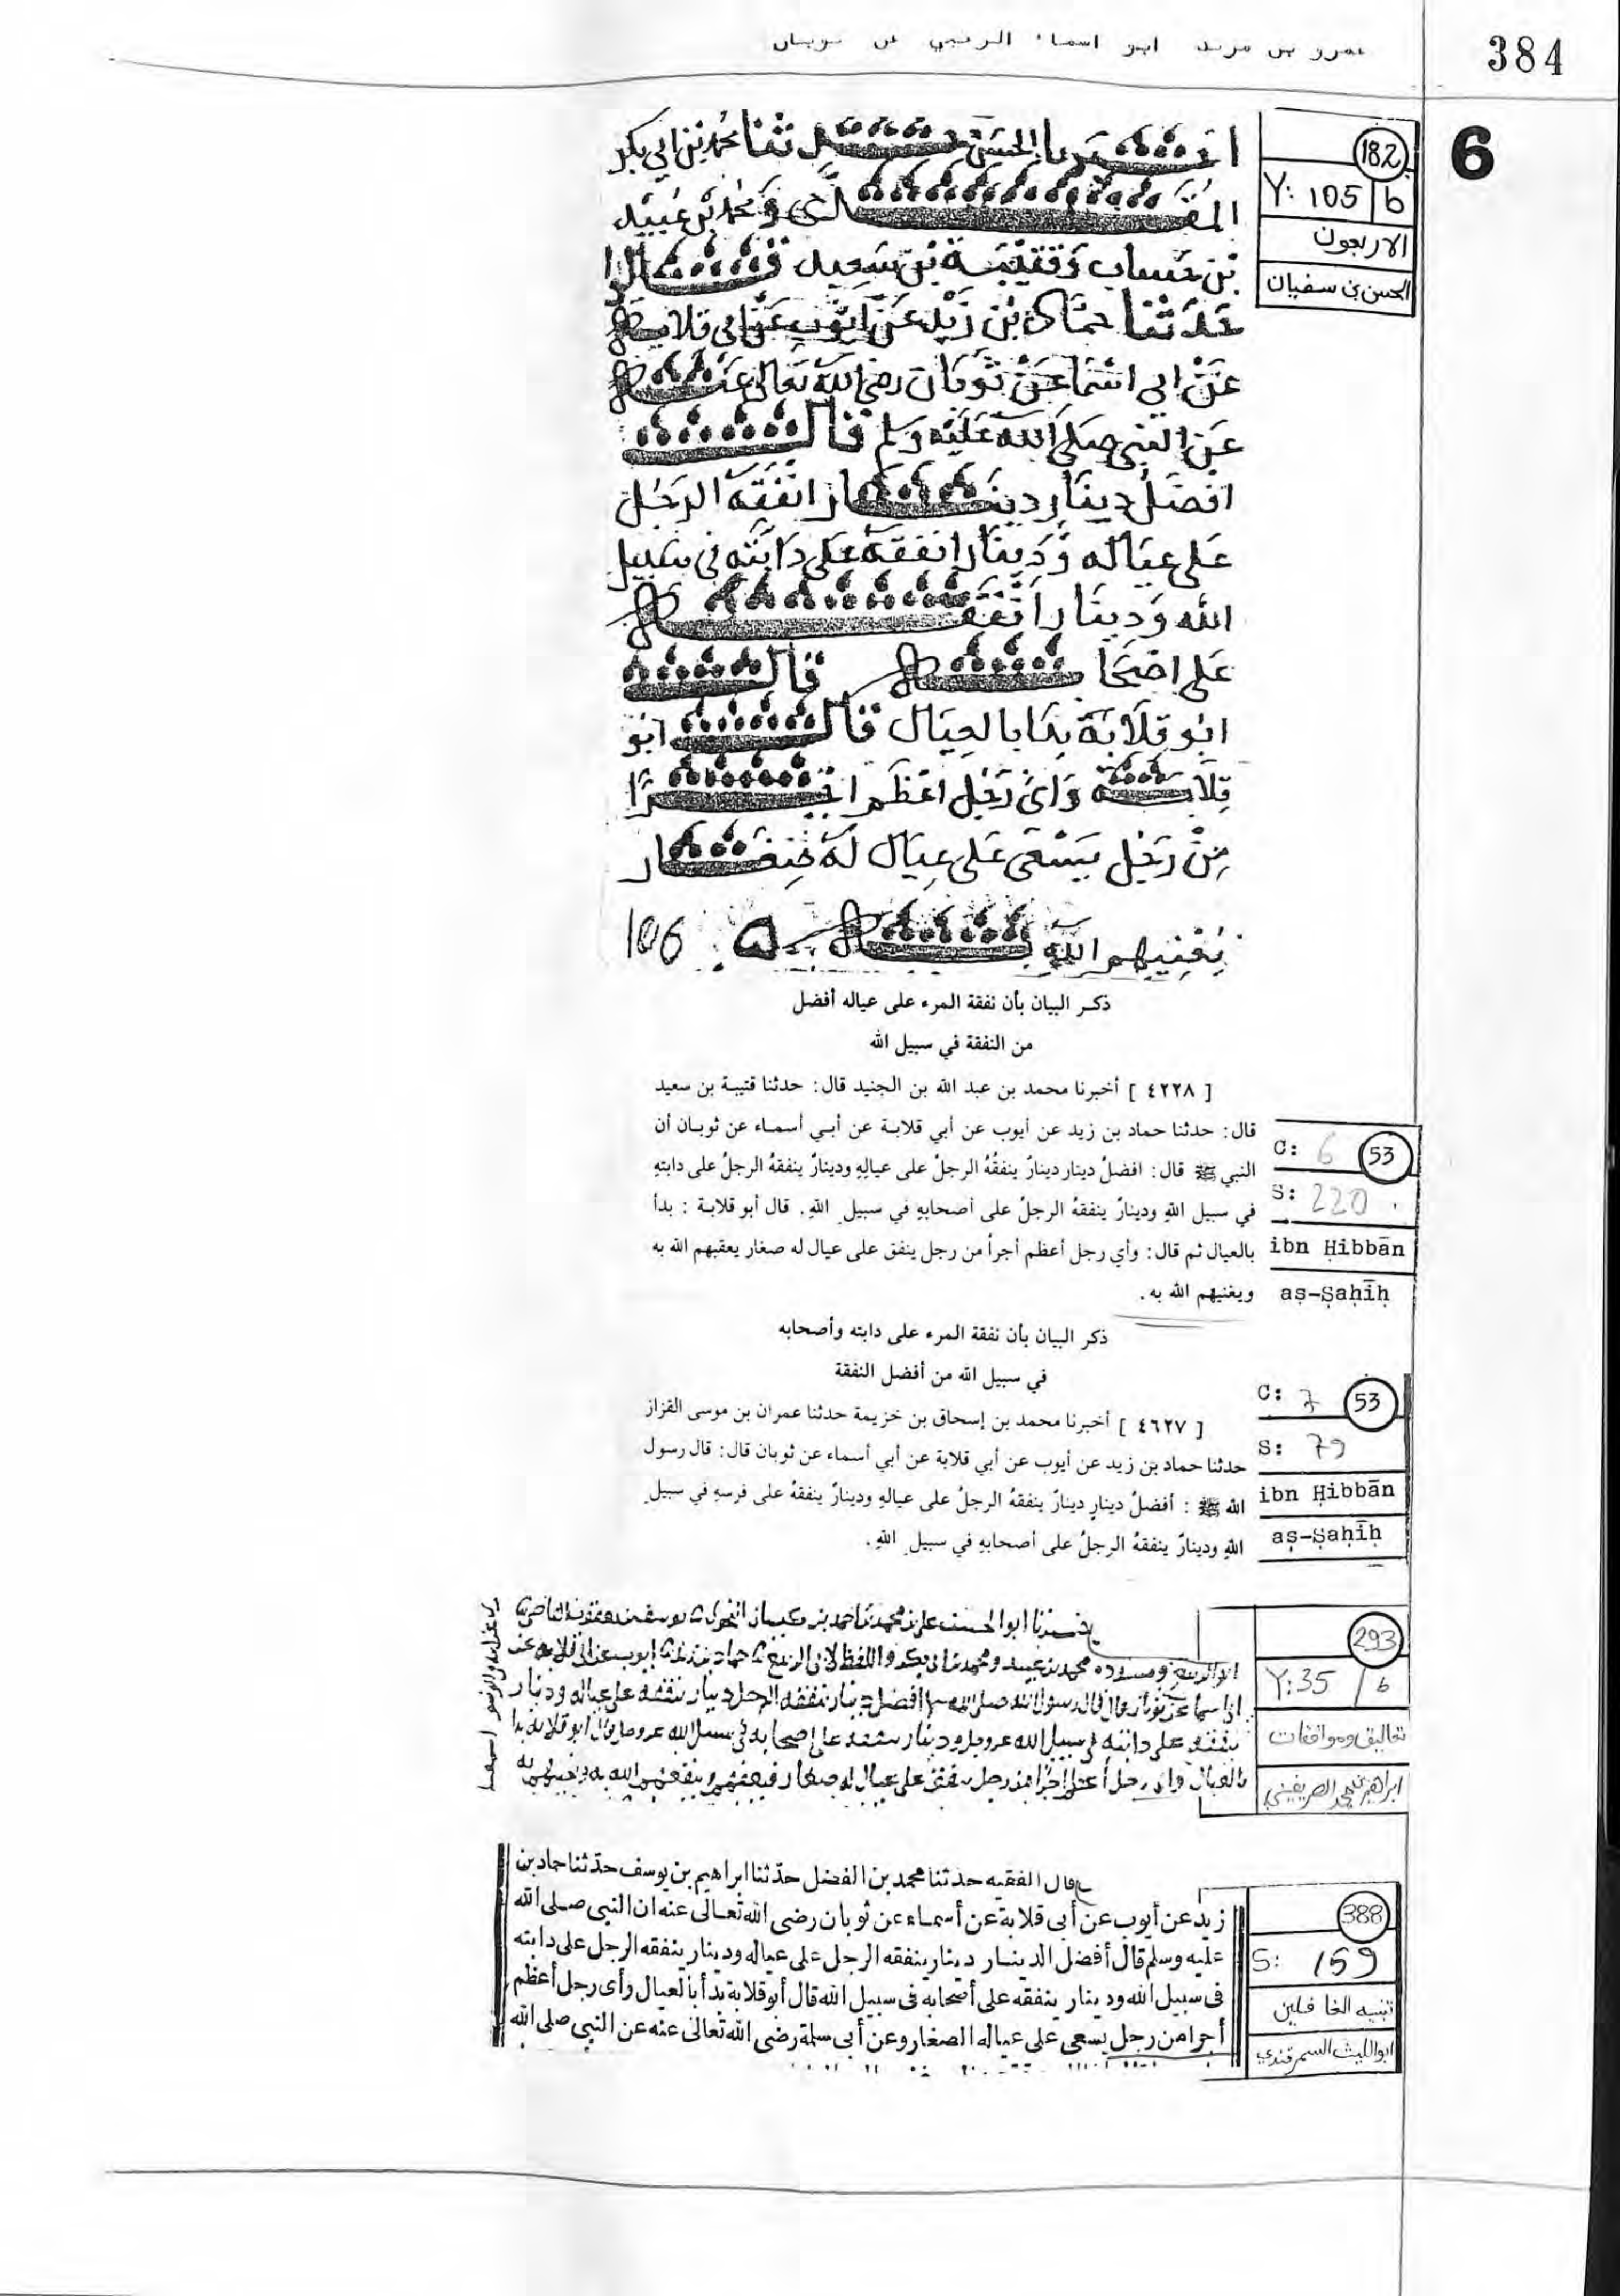 384
عمرو بن مرثد ابو اسماء الرحبي عن ثوبان
6
182
Y: 105 b
الاربعون
الحسن بن سفيان
اخبرنا الحسن ثنا محمد بن ابي بكر
المقدمي ومحمد بن عبيد
بن حساب وقتيبة بن سعيد قالوا
حدثنا حماد بن زيد عن ايوب عن ابي قلابة
عن ابي اسما عن ثوبان رضي الله تعالى عنه
عن النبي صلى الله عليه وسلم قال
افضل دينار دينار انفقه الرجل
على عياله ودينار انفقه على دابته في سبيل
الله ودينار انفقه
على اصحابه قال
ابو قلابة بدا بالعيال قال ابو
قلابة واي رجل اعظم اجرا
من رجل يسعى على عيال له صغار
يغنيهم الله به
106
ذكر البيان بأن نفقة المرء على عياله أفضل
من النفقة في سبيل الله
[ ٤٢٢٨ ] أخبرنا محمد بن عبد الله بن الجنيد قال: حدثنا قتيبة بن سعيد
قال: حدثنا حماد بن زيد عن أيوب عن أبي قلابة عن أبي أسماء عن ثوبان أن
النبي ﷺ قال: افضلُ دينار دينارٌ ينفقُهُ الرجلُ على عيالِهِ ودينارٌ ينفقهُ الرجلُ على دابتهِ
في سبيل اللهِ ودينارٌ ينفقهُ الرجلُ على أصحابهِ في سبيلِ اللهِ. قال أبو قلابة: بدأ
بالعيال ثم قال: وأي رجل أعظم أجراً من رجل ينفق على عيال له صغار يعقبهم الله به
ويغنيهم الله به.
C: 6 53
S: 220
ibn Ḥibbān
aṣ-Ṣaḥīḥ
ذكر البيان بأن نفقة المرء على دابته وأصحابه
في سبيل الله من أفضل النفقة
[ ٤٦٢٧ ] أخبرنا محمد بن إسحاق بن خزيمة حدثنا عمران بن موسى القزاز
حدثنا حماد بن زيد عن أيوب عن أبي قلابة عن أبي أسماء عن ثوبان قال: قال رسول
الله ﷺ: أفضلُ دينارٍ دينارٌ ينفقهُ الرجلُ على عيالهِ ودينارٌ ينفقهُ على فرسهِ في سبيلِ
اللهِ ودينارٌ ينفقهُ الرجلُ على أصحابهِ في سبيلِ اللهِ.
C: 7 53
S: 79
ibn Ḥibbān
aṣ-Ṣaḥīḥ
293
Y: 35 / b
تعاليق وموافقات
ابراهيم بن محمد الصريفيني
ابو الحسن علي بن محمد بن احمد بن كيسان النحوي يوسف بن يعقوب القاضي
ابو الربيع ومسدد ومحمد بن عبيد ومحمد بن ابي بكر واللفظ لابي الربيع حماد بن زيد ايوب عن ابي قلابة عن
ابي اسما عن ثوبان قال قال رسول الله صلى الله افضل دينار ينفقه الرجل دينار ينفقه على عياله ودينار
ينفقه على دابته في سبيل الله عز وجل ودينار ينفقه على اصحابه في سبيل الله عز وجل قال ابو قلابة بدا
بالعيال واي رجل اعظم اجرا من رجل ينفق على عيال له صغار
388
S: 159
تنبيه الغافلين
ابو الليث السمرقندي
قال الفقيه حدثنا محمد بن الفضل حدثنا ابراهيم بن يوسف حدثنا حماد بن
زيد عن أيوب عن أبى قلابة عن أسماء عن ثوبان رضى الله تعالى عنه ان النبى صلى الله
عليه وسلم قال أفضل الدينار دينار ينفقه الرجل على عياله ودينار ينفقه الرجل على دابته
فى سبيل الله ودينار ينفقه على أصحابه فى سبيل الله قال أبو قلابة بدأ بالعيال وأى رجل أعظم
أجرا من رجل يسعى على عياله الصغار وعن أبى سلمة رضى الله تعالى عنه عن النبى صلى الله